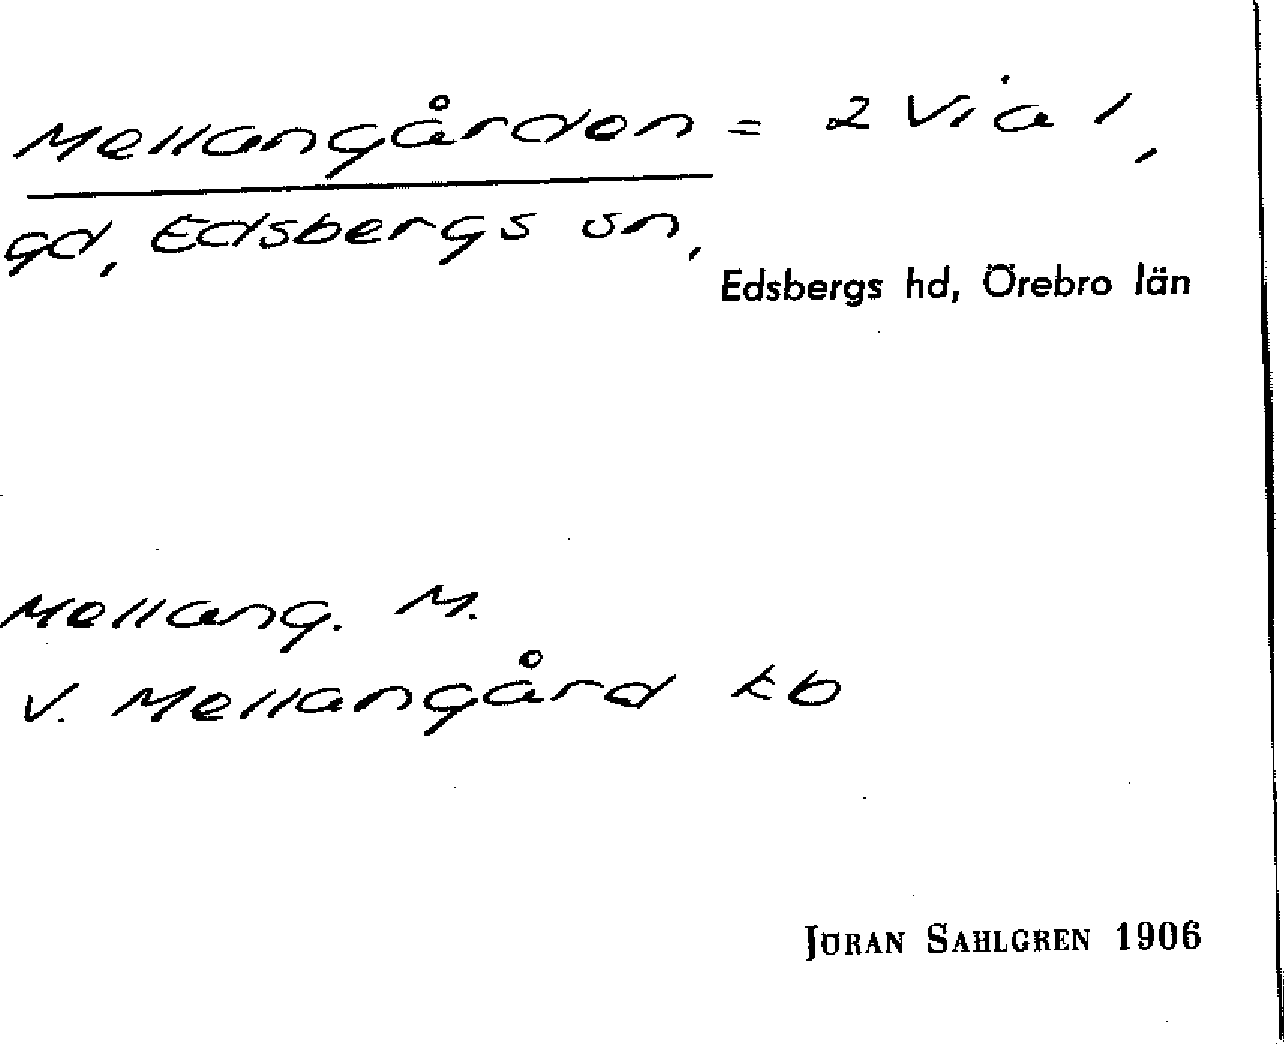 Mellangården = 2 Via 1,
gd, Edsbergs sn,
Edsbergs hd, Örebro län
Mellang. M.
V. Mellangård kb
JÖRAN SAHLGREN 1906